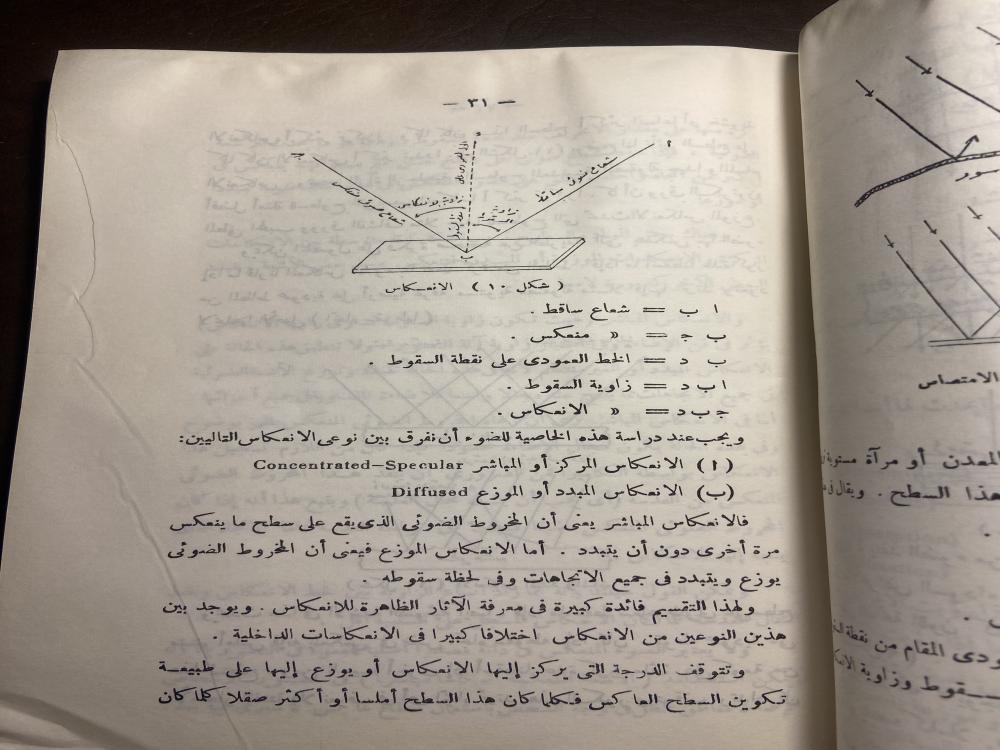 — ٣١ —
ا
د
ج
شعاع ضوئى ساقط
شعاع ضوئى منعكس
زاوية الانعكاس
زاوية السقوط
ب
( شكل ١٠ ) الانعكاس
ا ب = شعاع ساقط .
ب ج = « منعكس .
ب د = الخط العمودى على نقطة السقوط .
ا ب د = زاوية السقوط .
ج ب د = « الانعكاس .
ويجب عند دراسة هذه الخاصية للضوء أن نفرق بين نوعى الانعكاس التاليين:
(ا) الانعكاس المركز أو المباشر Concentrated–Specular
(ب) الانعكاس المبدد أو الموزع Diffused
فالانعكاس المباشر يعنى أن المخروط الضوئى الذى يقع على سطح ما ينعكس
مرة أخرى دون أن يتبدد . أما الانعكاس الموزع فيعنى أن المخروط الضوئى
يوزع ويتبدد فى جميع الاتجاهات وفى لحظة سقوطه .
ولهذا التقسيم فائدة كبيرة فى معرفة الآثار الظاهرة للانعكاس . ويوجد بين
هذين النوعين من الانعكاس اختلافا كبيرا فى الانعكاسات الداخلية .
وتتوقف الدرجة التى يركز إليها الانعكاس أو يوزع إليها على طبيعة
تكوين السطح العاكس فكلما كان هذا السطح أملسا أو أكثر صقلا كلما كان
الامتصاص
المعدن أو مرآة مستوية
هذا السطح . ويقال فى
ودى المقام من نقطة
سقوط وزاوية